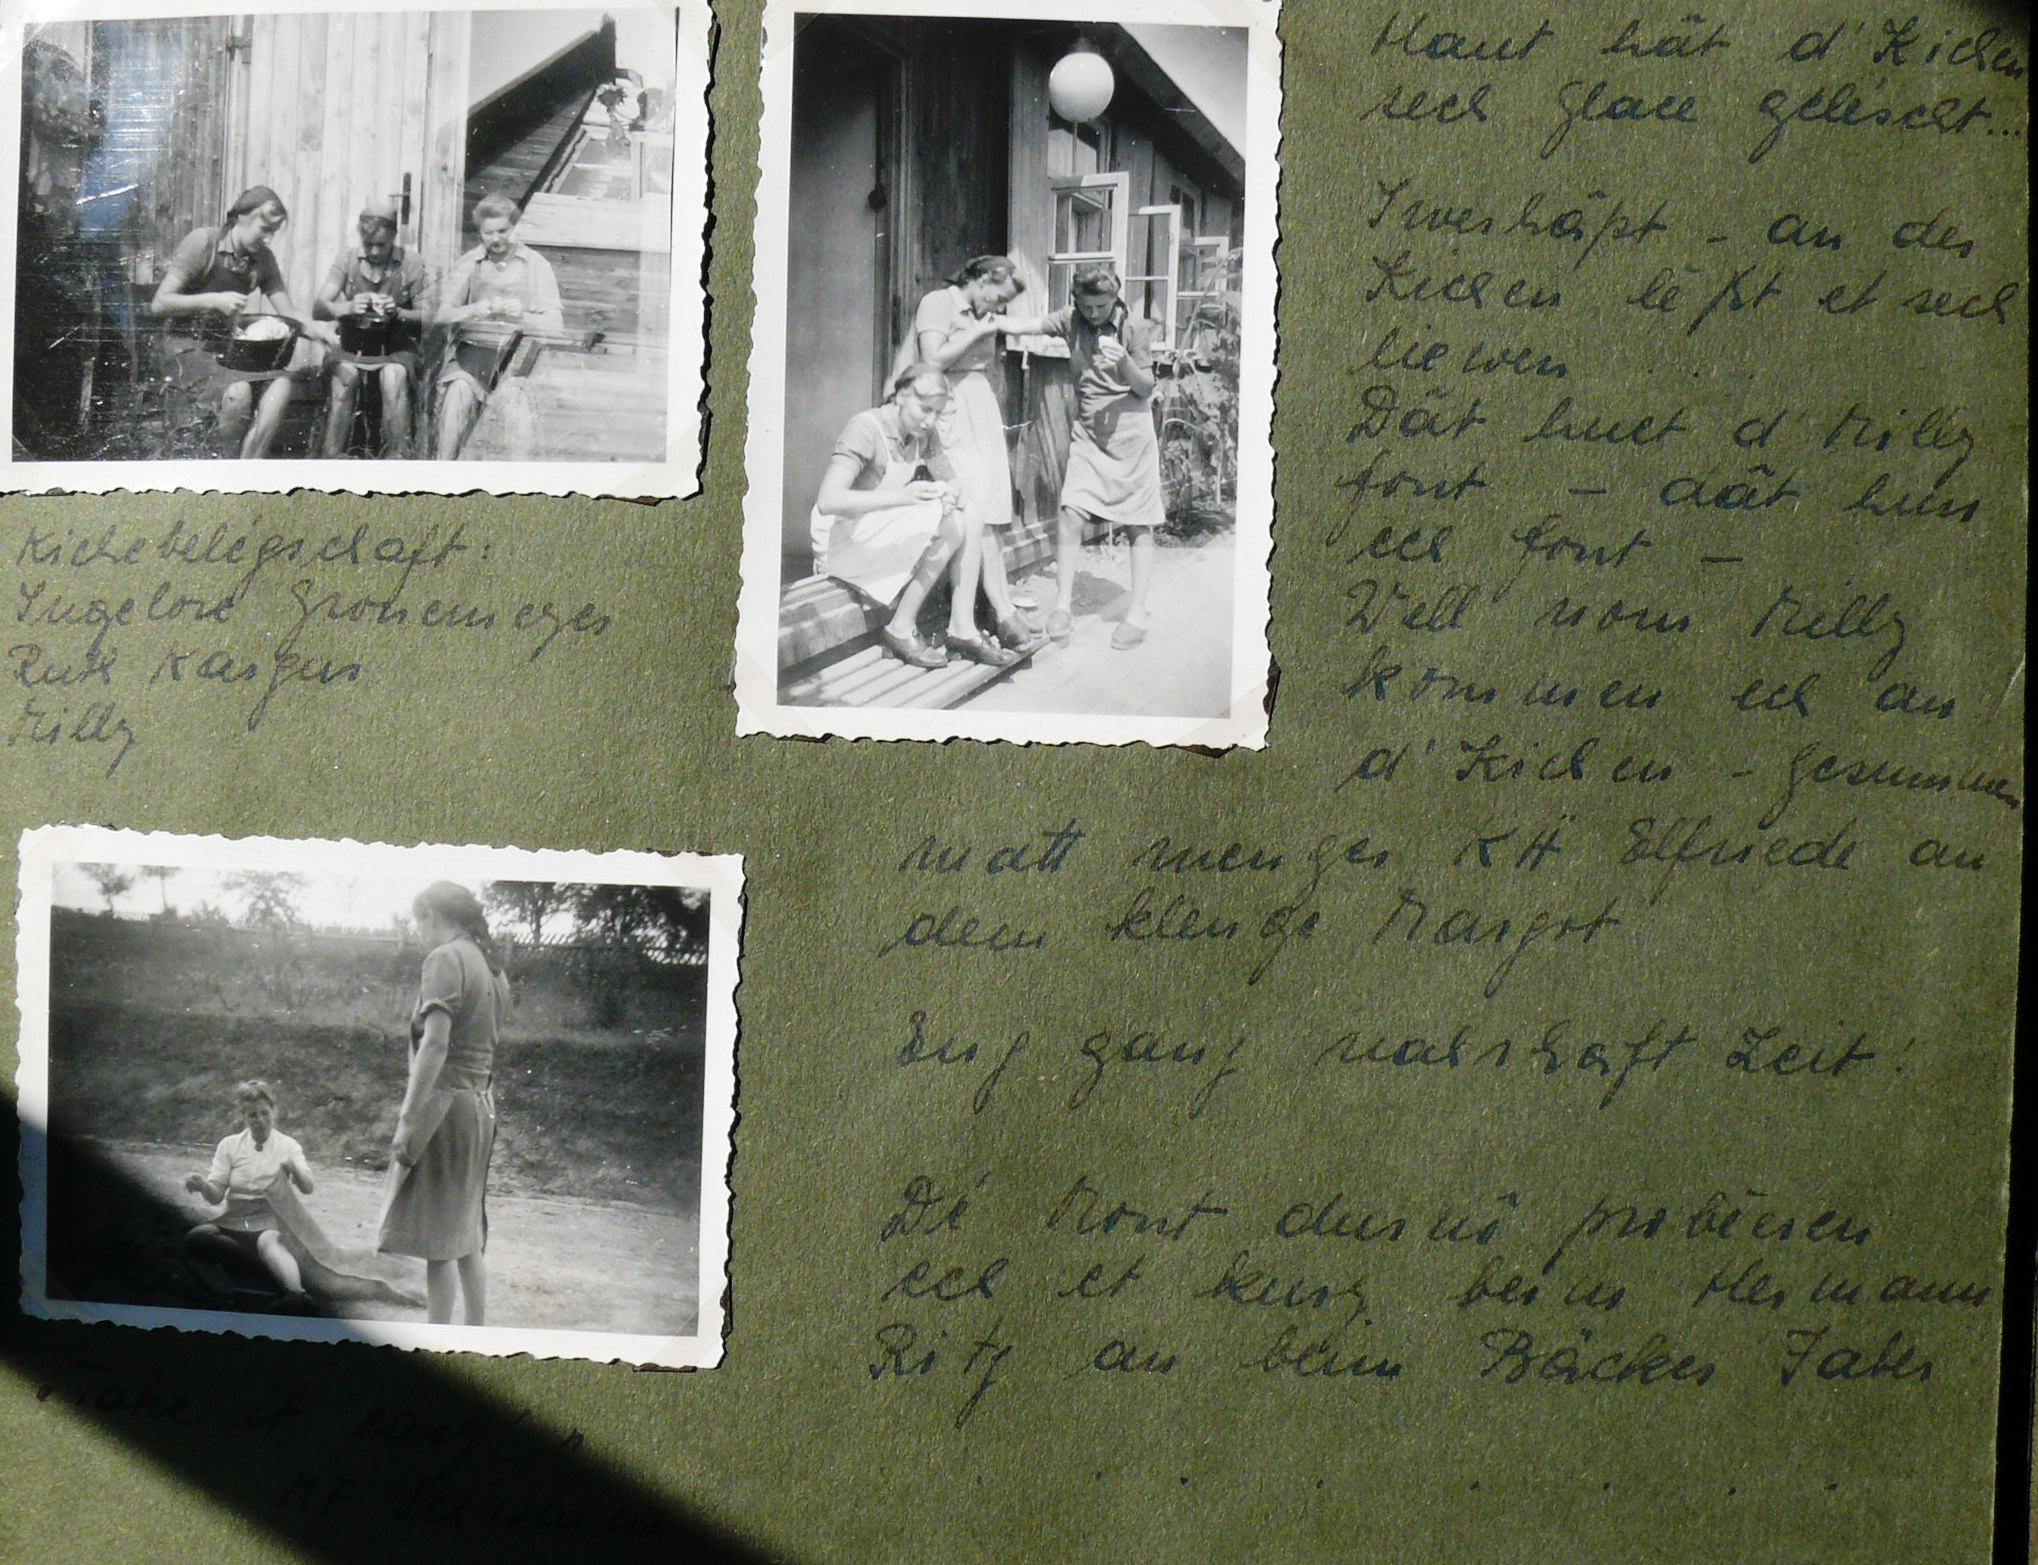 Kichebelégschaft:
Ingelore Gronemeyer
Ruth Kargus
Milly
"Take it easy!"
MF
Haut hät d'Kichen
sech glace geléscht...
Iwerhäpt - an der
Kichen léßt et sech
liewen . . .
Dät huet d'Milly
font - dät hun
ech font -
Well vom Milly
kommen ech an
d'Kichen - gesummen
matt menger KÄ Elfriede an
dem klenge Margot
Eng ganz nahrhaft Zeit!
Dé Kont dernó probéeren
ech et kurz beim Hermann
Ritz an beim Bäcker Faber
. . . . . . . .